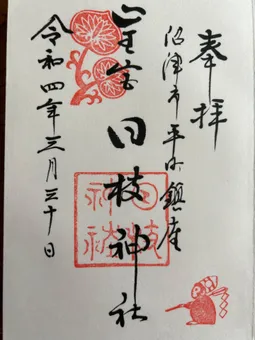 奉拝
沼津市平町鎮座
日枝神社
日枝神社
令和四年三月三十日